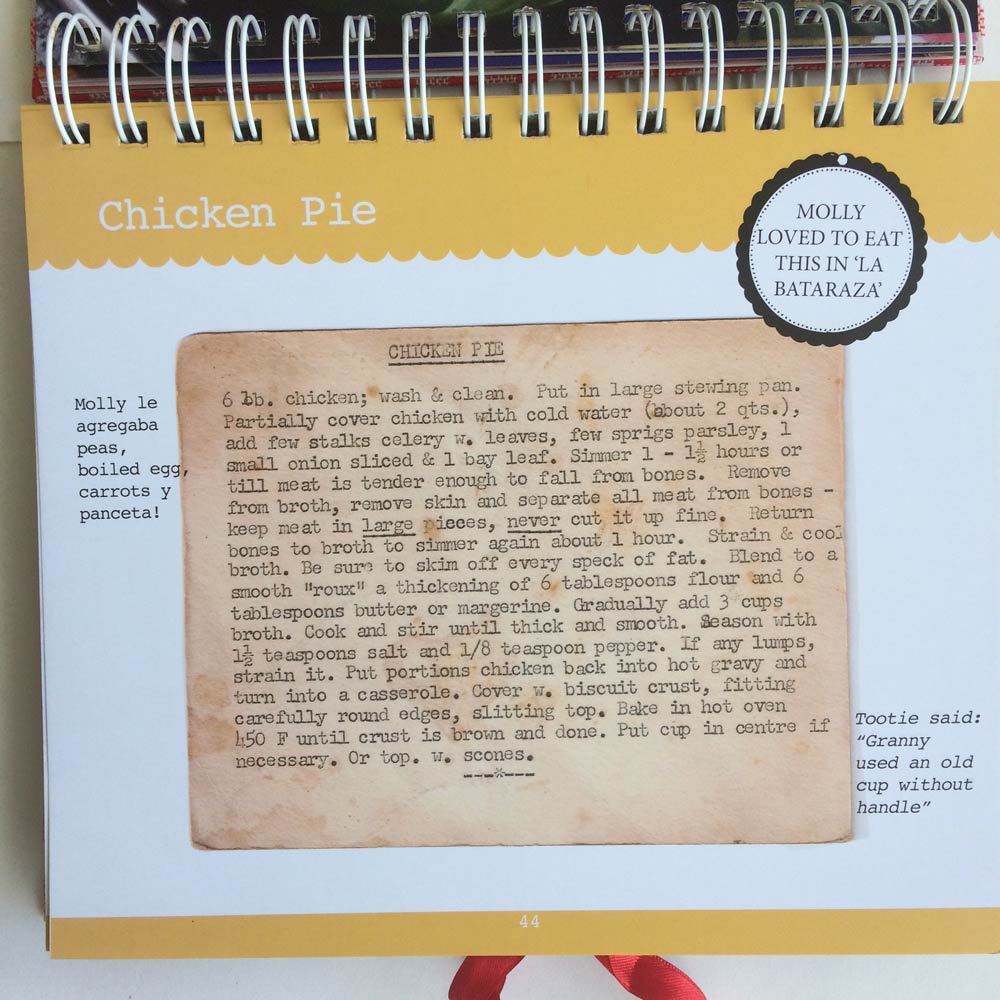 Chicken Pie
MOLLY
LOVED TO EAT
THIS IN ‘LA
BATARAZA’
Molly le
agregaba
peas,
boiled egg,
carrots y
panceta!
CHICKEN PIE
6 lb. chicken; wash & clean. Put in large stewing pan.
Partially cover chicken with cold water (about 2 qts.),
add few stalks celery w. leaves, few sprigs parsley, 1
small onion sliced & 1 bay leaf. Simmer 1 - 1½ hours or
till meat is tender enough to fall from bones. Remove
from broth, remove skin and separate all meat from bones -
keep meat in large pieces, never cut it up fine. Return
bones to broth to simmer again about 1 hour. Strain & cool
broth. Be sure to skim off every speck of fat. Blend to a
smooth "roux" a thickening of 6 tablespoons flour and 6
tablespoons butter or margerine. Gradually add 3 cups
broth. Cook and stir until thick and smooth. Season with
1½ teaspoons salt and 1/8 teaspoon pepper. If any lumps,
strain it. Put portions chicken back into hot gravy and
turn into a casserole. Cover w. biscuit crust, fitting
carefully round edges, slitting top. Bake in hot oven
450 F until crust is brown and done. Put cup in centre if
necessary. Or top. w. scones.
---*---
Tootie said:
“Granny
used an old
cup without
handle”
44